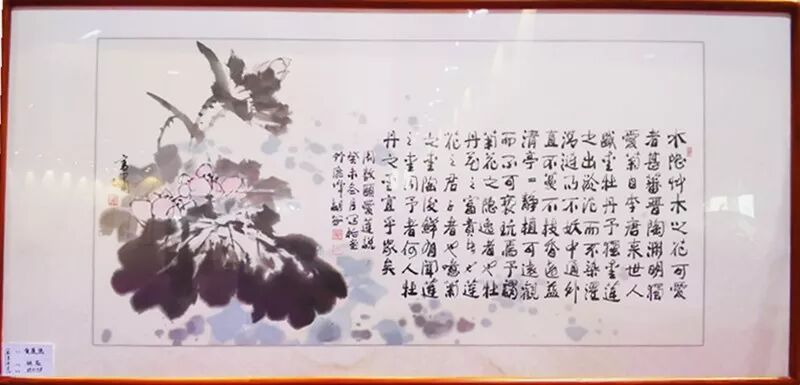 水陸艸木之花可愛
者甚蕃晋陶渊明獨
愛菊自李唐来世人
盛愛牡丹予獨愛蓮
之出淤泥而不染濯
清涟而不妖中通外
直不蔓不枝香遠益
清亭〻静植可遠觀
而不可亵玩焉予謂
菊花之隐逸者也牡
丹花之富貴者也蓮
花之君子者也噫菊
之愛陶後鮮有聞蓮
之愛同予者何人牡
丹之愛宜乎衆矣
周敦頤愛蓮說
癸未冬月寫於